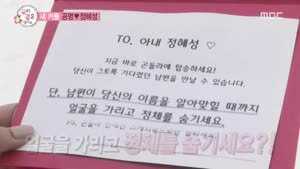 새 커플 공명♥정혜성
MBC
TO. 아내 정혜성 ♡
지금 바로 곤돌라에 탑승하세요!
당신이 그토록 기다렸던 남편을
만날 수 있습니다.
단, 남편이 당신의 이름을 알아맞힐 때까지
얼굴을 가리고 정체를 숨기세요.
얼굴을 가리고 정체를 숨기세요?!